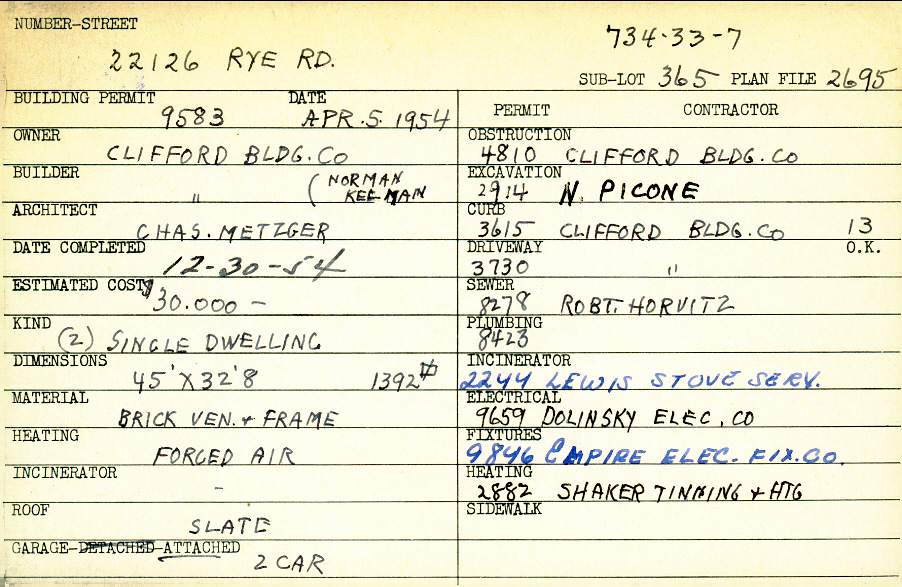 NUMBER-STREET
22126 RYE RD.
734-33-7
SUB-LOT 365 PLAN FILE 2695
BUILDING PERMIT DATE
9583 APR. 5. 1954
OWNER
CLIFFORD BLDG. CO
BUILDER
" (NORMAN
KELMAN
ARCHITECT
CHAS. METZGER
DATE COMPLETED
12-30-54
ESTIMATED COST
$30.000 -
KIND
(2) SINGLE DWELLING
DIMENSIONS
45' X 32'8 1392
MATERIAL
BRICK VEN. + FRAME
HEATING
FORCED AIR
INCINERATOR
-
ROOF
SLATE
GARAGE-DETACHED-ATTACHED
2 CAR
PERMIT CONTRACTOR
OBSTRUCTION
4810 CLIFFORD BLDG. CO
EXCAVATION
2914 N. PICONE
CURB
3615 CLIFFORD BLDG. CO 13
DRIVEWAY O.K.
3730 "
SEWER
8278 ROBT. HORVITZ
PLUMBING
8423
INCINERATOR
2244 LEWIS STOVE SERV.
ELECTRICAL
9659 DOLINSKY ELEC. CO
FIXTURES
9846 EMPIRE ELEC. FIX. CO.
HEATING
2882 SHAKER TINNING + HTG
SIDEWALK